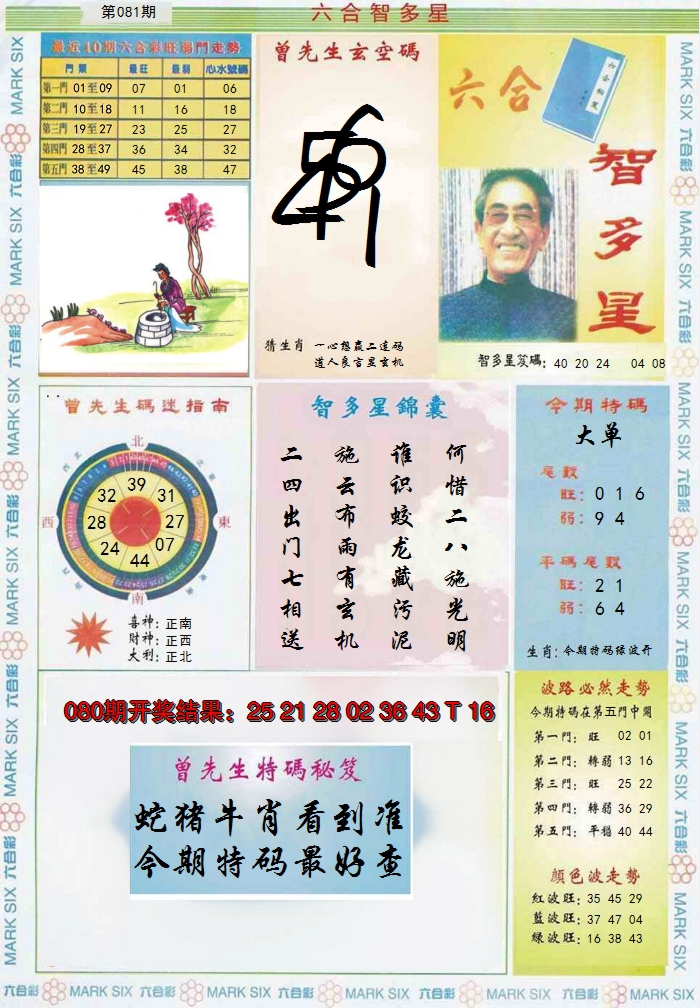 第081期
六合智多星
最近10期六合彩旺弱門走勢
門類 最旺 最弱 心水號碼
第一門 01至09 07 01 06
第二門 10至18 11 16 18
第三門 19至27 23 25 27
第四門 28至37 36 34 32
第五門 38至49 45 38 47
曾先生玄空碼
猜生肖
一心想贏二連码
道人良言呈玄机
六合
智多星
智多星笈碼: 40 20 24 04 08
曾先生碼迷指南
北
西
東
南
39
31
27
07
44
24
28
32
喜神: 正南
財神: 正西
大利: 正北
智多星錦囊
何惜二八施光明
谁识蛟龙藏污泥
施云布雨有玄机
二四出门七相送
今期特碼
大单
尾數
旺: 0 1 6
弱: 9 4
平碼尾數
旺: 2 1
弱: 6 4
生肖: 今期特码绿波开
080期开奖结果: 25 21 28 02 36 43 T 16
曾先生特碼秘笈
蛇猪牛肖看到准
今期特码最好查
波路必然走勢
今期特碼在第五門中開
第一門: 旺 02 01
第二門: 轉弱 13 16
第三門: 旺 25 22
第四門: 轉弱 36 29
第五門: 平穩 40 44
顏色波走勢
紅波旺: 35 45 29
藍波旺: 37 47 04
綠波旺: 16 38 43
六合彩 MARK SIX